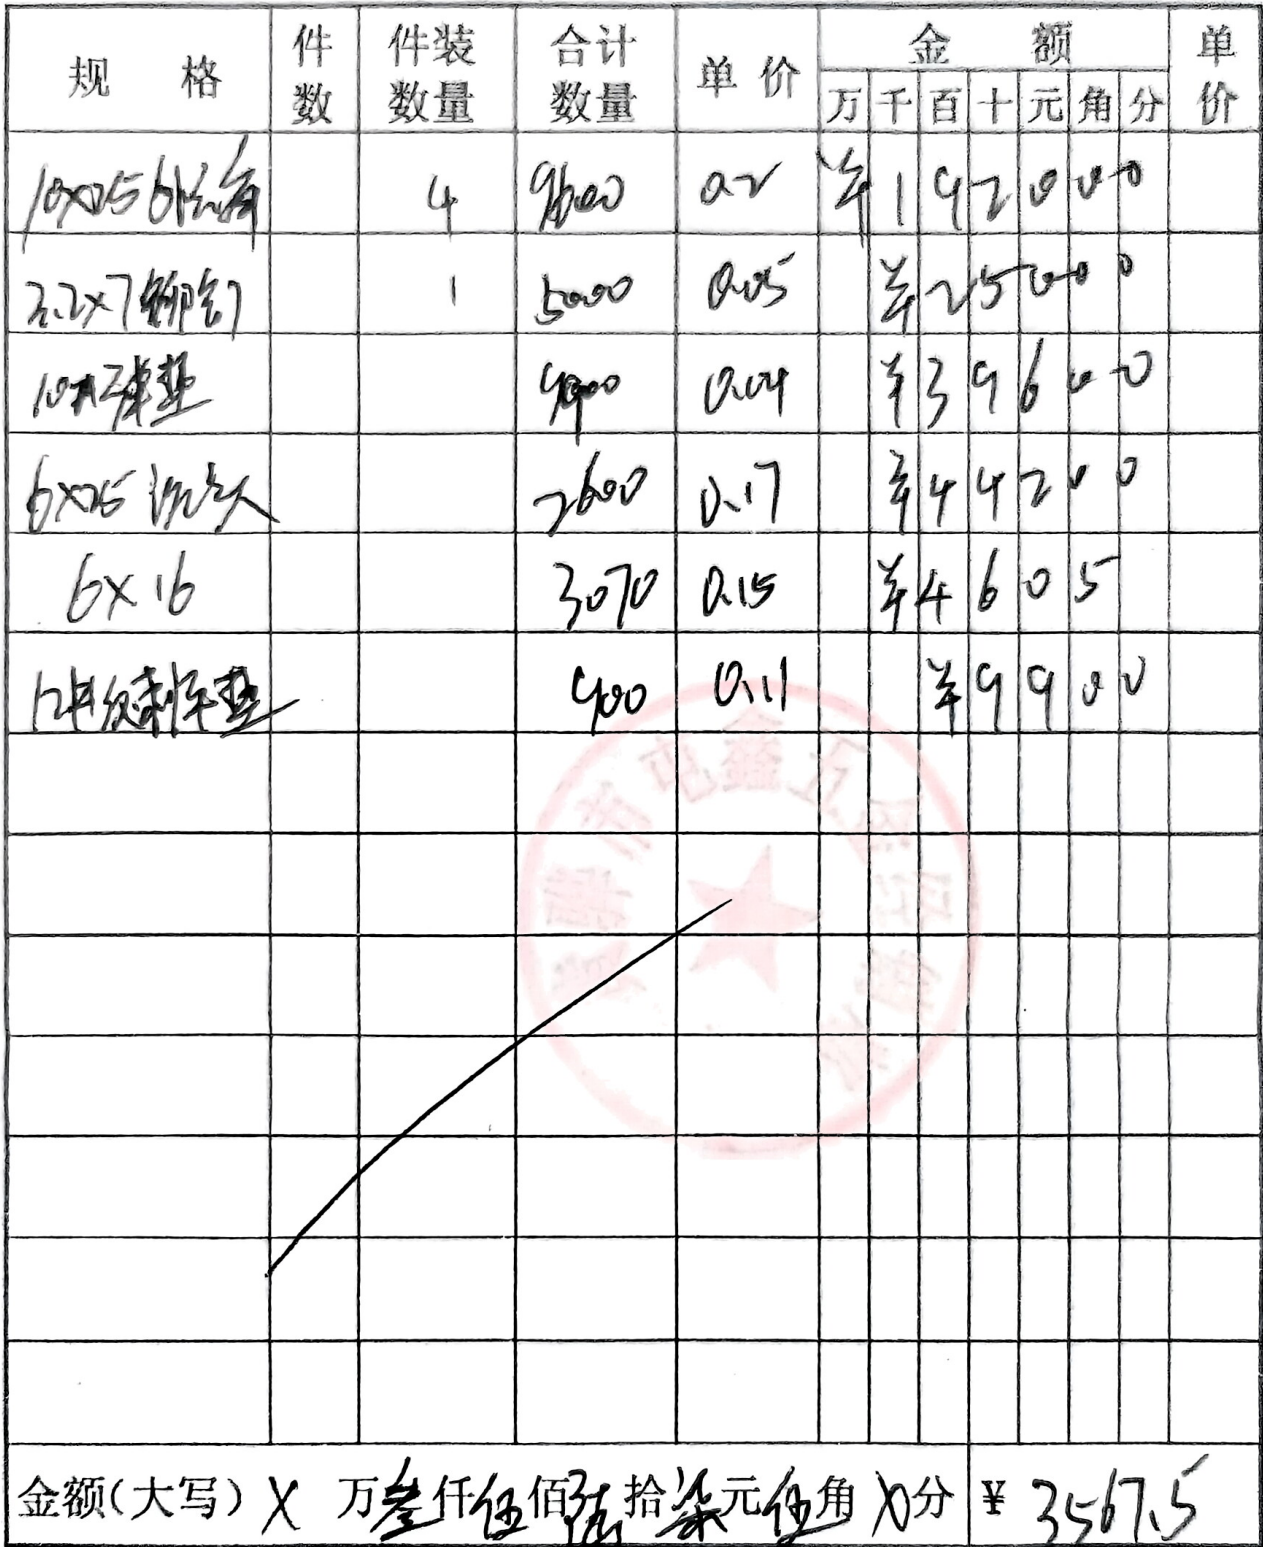 规 格 件数 件装数量 合计数量 单价 金 额 单价
万 千 百 十 元 角 分
10×25 4 9600 0.2 ¥ 1 9 2 0 0 0
3.2×7铆钉 1 5000 0.05 ¥ 2 5 0 0 0
10#弹垫 9900 0.04 ¥ 3 9 6 0 0
6×25沉头 2600 0.17 ¥ 4 4 2 0 0
6×16 3070 0.15 ¥ 4 6 0 5
900 0.11 ¥ 9 9 0 0
金额(大写) X 万叁仟伍佰陆拾柒元伍角 X分 ¥ 3567.5